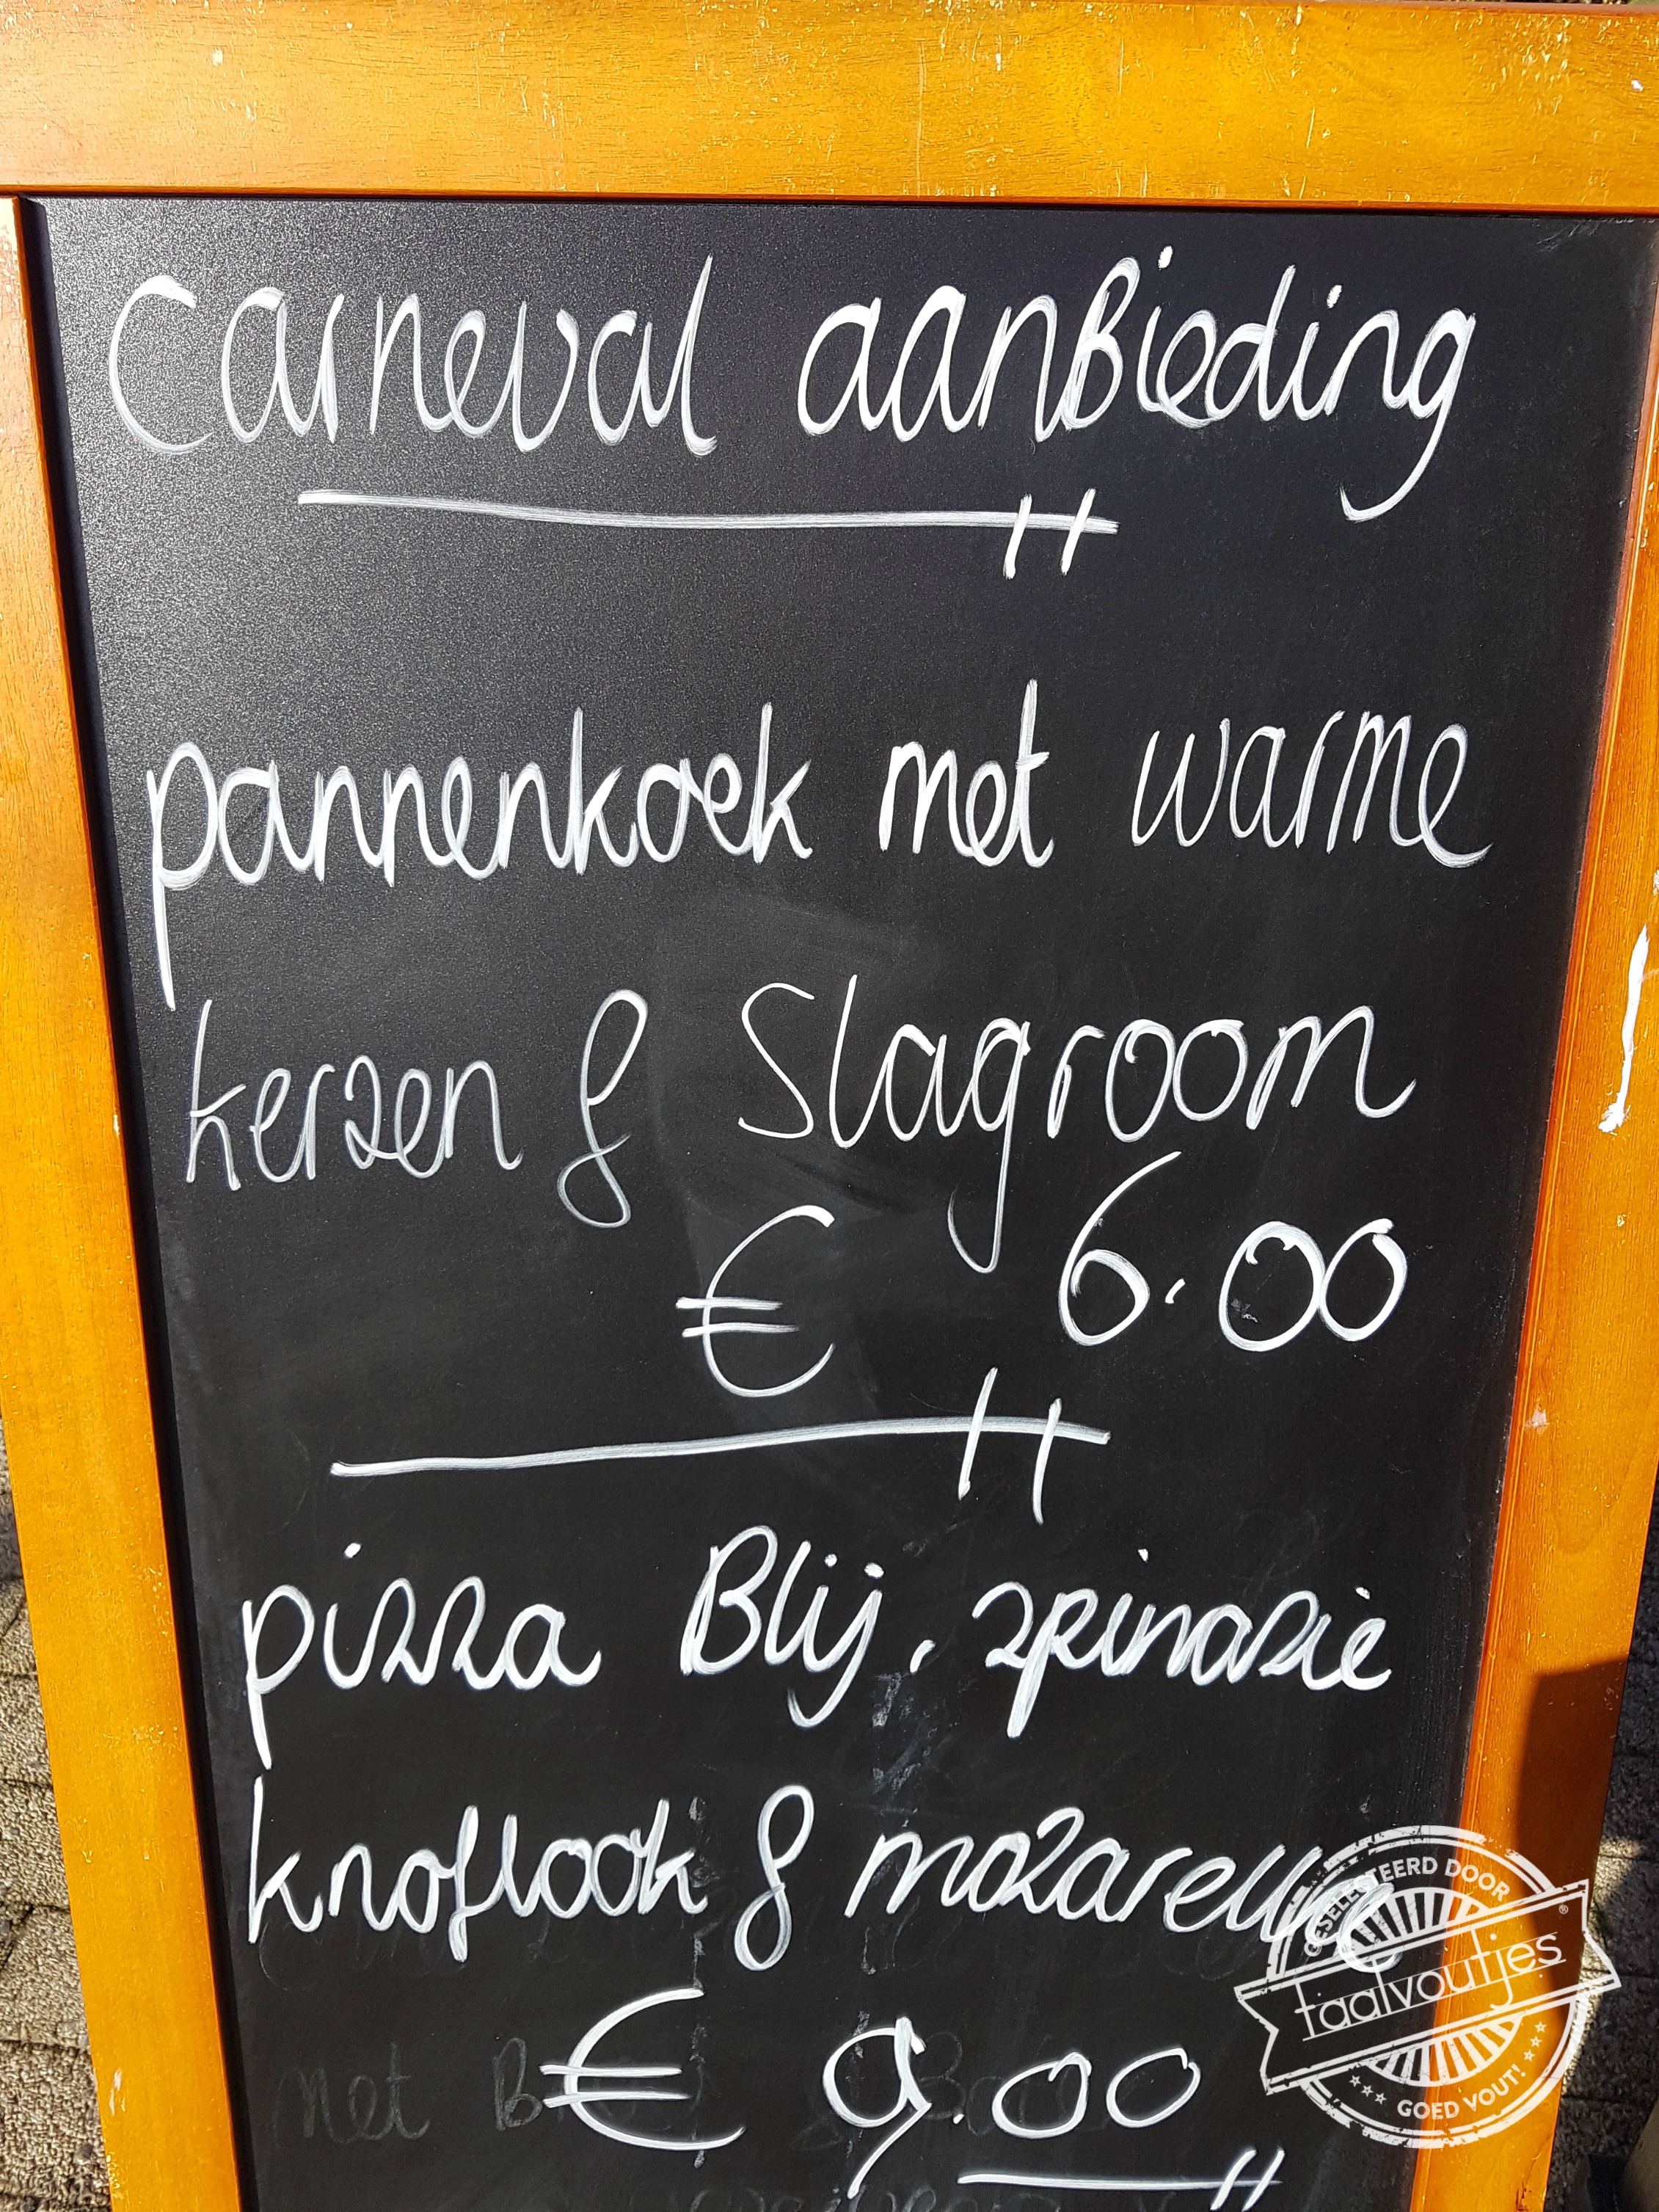 Carneval aanBieding
pannenkoek met warme
kerzen & Slagroom
€ 6.00
pizza Blij, zpinazie
knoflook & mozarella
€ 9.00
net
GESELECTEERD DOOR
taalvoutjes®
GOED VOUT!